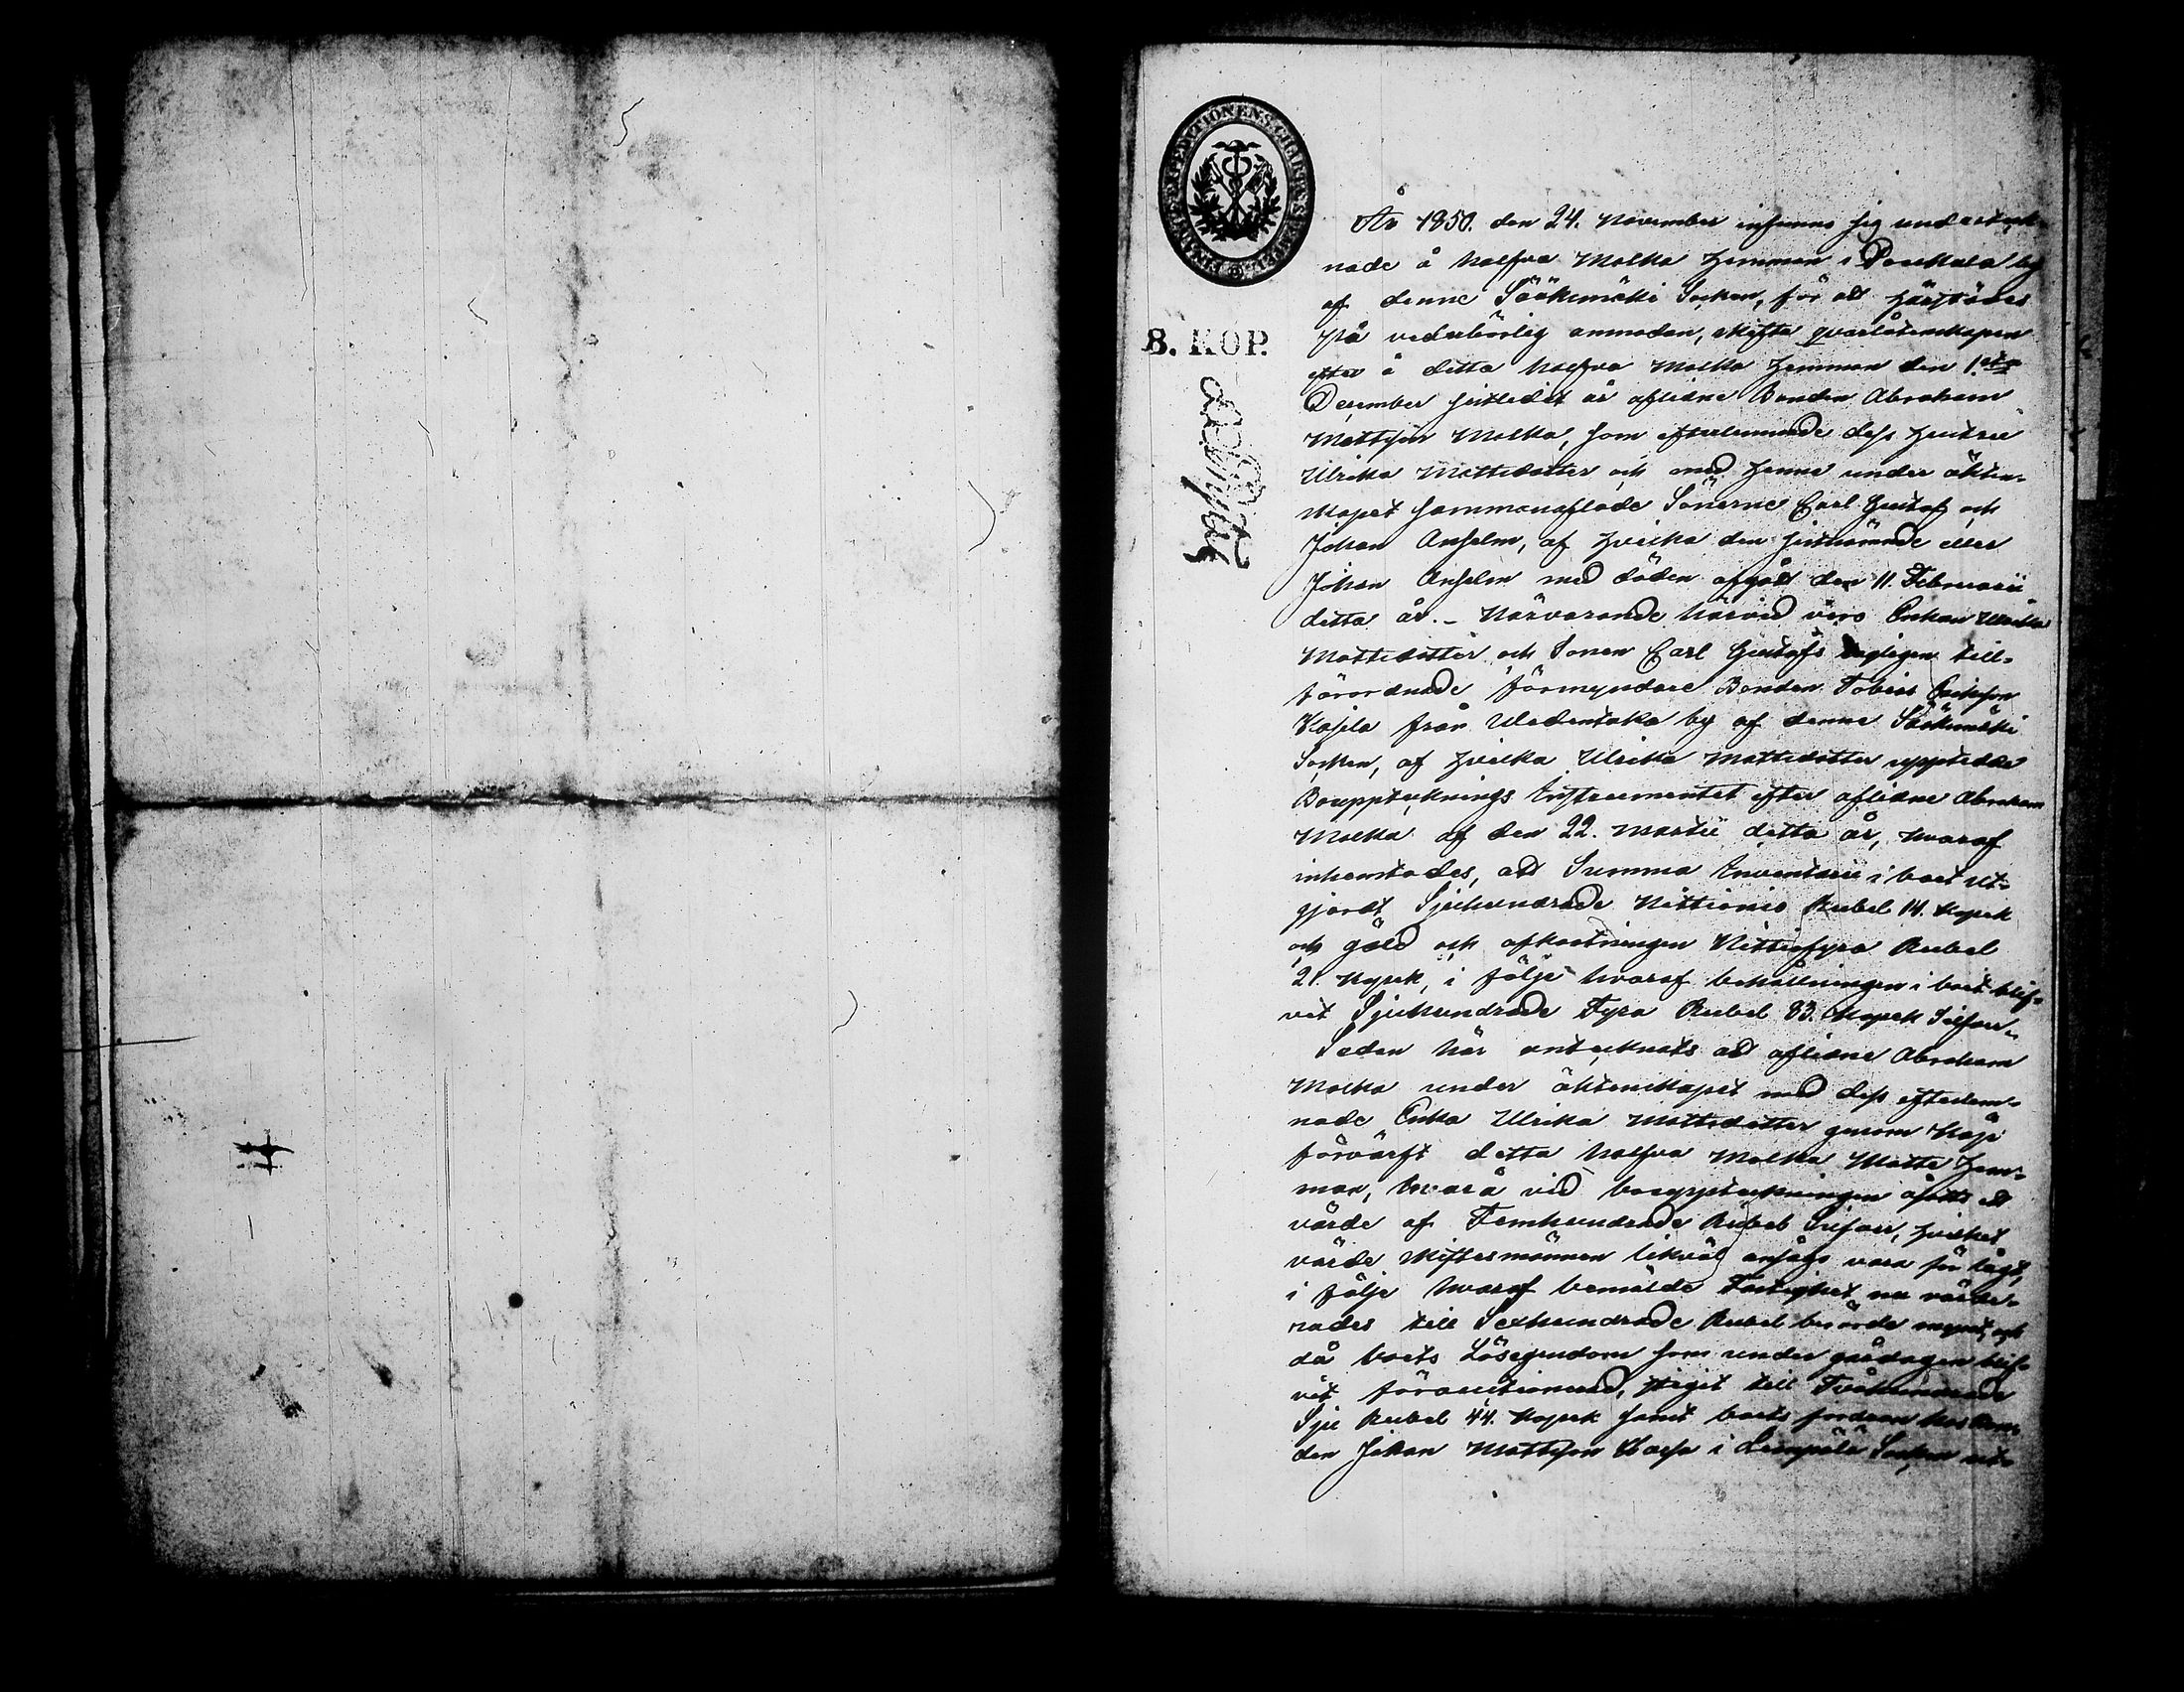 FINANCE EXPEDITIONENS CHARTÆ SIGILL
8. KOP.
År 1850. den 24. November infunno sig underteck-
nade å halfva Molka Hemman i Punkala by
af denne Sääksmäki Socken, för att härstädes
på vederbörlig anmodan, skifta qvarlåtenskapen
efter å detta halfva Molka Hemman den 1:sta
December sistledit år aflidne Bonden Abraham
Mattsson Molka, som efterlemnade dess Hustru
Ulrika Mattsdotter och med henne under äkten-
skapet sammanaflade Sönerne Carl Gustaf och
Johan Anselm, af hvilka den sistnämnde eller
Johan Anselm med döden afgått den 11. Februarii
detta år. - Närvarande härvid voro Enkan Ulrika
Mattsdotter och Sonen Carl Gustafs lagligen till-
förordnade förmyndare Bonden Tobias
från by af denne Sääksmäki
Socken, af hvilka Ulrika Mattsdotter uppteddes
Bouppteknings Instrumentet efter aflidne Abraham
Molka af den 22. Martii detta år, hvaraf
inhemtades, att Summa Inventarii i boet ut-
gjordt Sjuhundrade Nittionio Rubel 14. kopek
och gäld och afkortningen Nittiofyra Rubel
21. kopek, i följe hvaraf behållningen i boet blif-
vit Sjuhundrade Fyra Rubel 93. kopek Silfver.
Sedan här antecknats att aflidne Abraham
Molka under äktenskapet med dess efterlem-
nade Enka Ulrika Mattsdotter genom köp
förvärft detta halfva Molka Matts Hem-
man, hvarå vid bouppteckningen åsatts ett
värde af Femhundrade Rubel Silfver, hvilket
värde skiftesmännen likväl ansågo vara för lågt,
i följe hvaraf bemälde Fastighet nu värde-
rades till Sexhundrade Rubel berörde mynt, och
då boets Lösegendom som under gårdagen blif-
vit förauctionerad, stiget till Tvåhundrade
Sju Rubel 44. kopek samt boets fordran hos Bon-
den Johan Mattsson i Lempälä Socken ut-